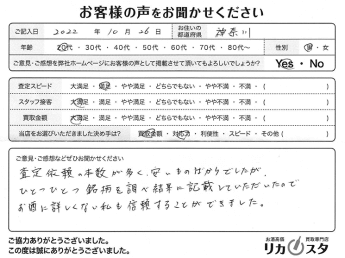 お客様の声をお聞かせください
ご記入日 2022 年 10 月 26 日 お住いの都道府県 神奈川
年齢 20代・30代・40代・50代・60代・70代・80代〜 性別 男・女
ご意見・ご感想を弊社ホームページにお客様の声として掲載させて頂いてもよろしいでしょうか? Yes・No
査定スピード 大満足・満足・やや満足・どちらでもない・やや不満・不満・( )
スタッフ接客 大満足・満足・やや満足・どちらでもない・やや不満・不満・( )
買取金額 大満足・満足・やや満足・どちらでもない・やや不満・不満・( )
当店をお選びいただきました決め手は? 買取金額・対応力・利便性・スピード・その他( )
ご意見・ご感想などぜひお聞かせください
査定依頼の本数が多く、安いものばかりでしたが、
ひとつひとつ銘柄を調べ結果に記載していただいたので
お酒に詳しくない私も信頼することができました。
ご協力ありがとうございました。
この度は誠にありがとうございました。
お酒高価 買取専門店
リカスタ